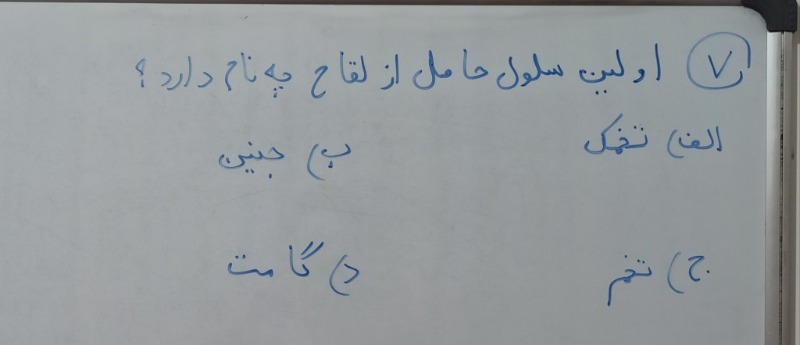 ۷ اولین سلول حاصل از لقاح چه نام دارد؟
الف) تخمک ب) جنین
ج) تخم د) گامت